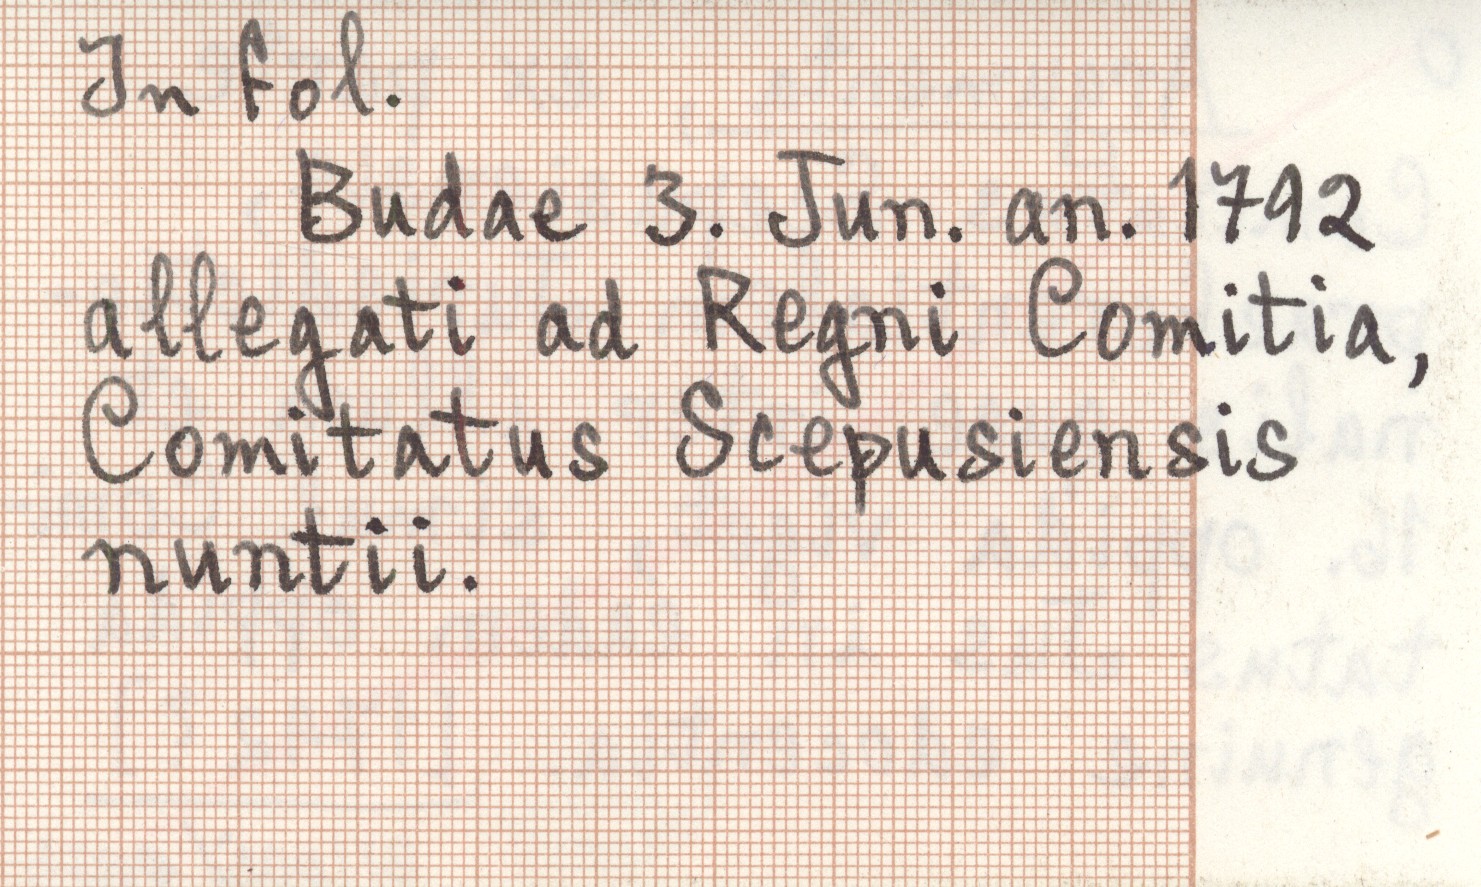 In fol.
Budae 3. Jun. an. 1792
allegati ad Regni Comitia,
Comitatus Scepusiensis
nuntii.